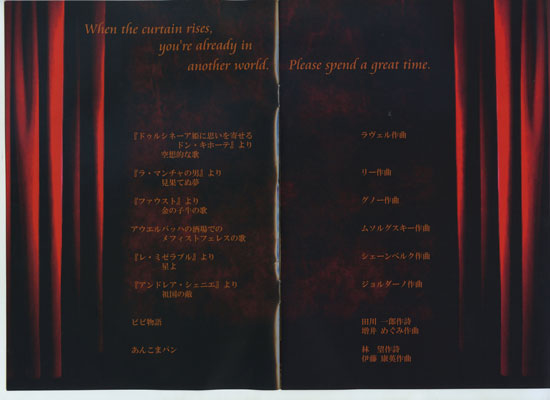 When the curtain rises,
you're already in
another world.
Please spend a great time.
『ドゥルシネーア姫に思いを寄せる
ドン・キホーテ』より
空想的な歌
ラヴェル作曲
『ラ・マンチャの男』より
見果てぬ夢
リー作曲
『ファウスト』より
金の子牛の歌
グノー作曲
アウエルバッハの酒場での
メフィストフェレスの歌
ムソルグスキー作曲
『レ・ミゼラブル』より
星よ
シェーンベルク作曲
『アンドレア・シェニエ』より
祖国の敵
ジョルダーノ作曲
ビビ物語
田川 一郎作詩
増井 めぐみ作曲
あんこまパン
林 望作詩
伊藤 康英作曲